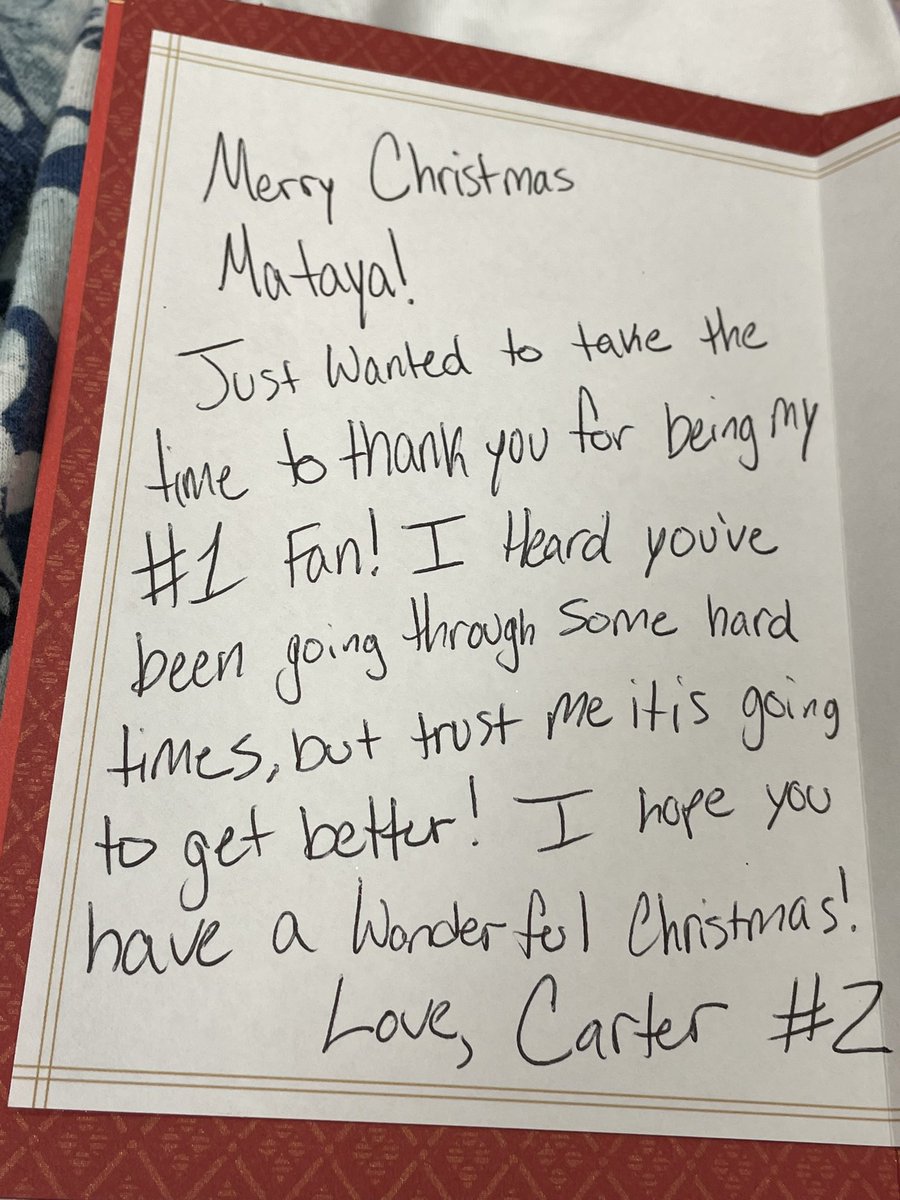 Merry Christmas
Mataya!
Just Wanted to take the
time to thank you for being my
#1 Fan! I Heard you've
been going through some hard
times, but trust me it is going
to get better! I hope you
have a Wonderful Christmas!
Love, Carter #2